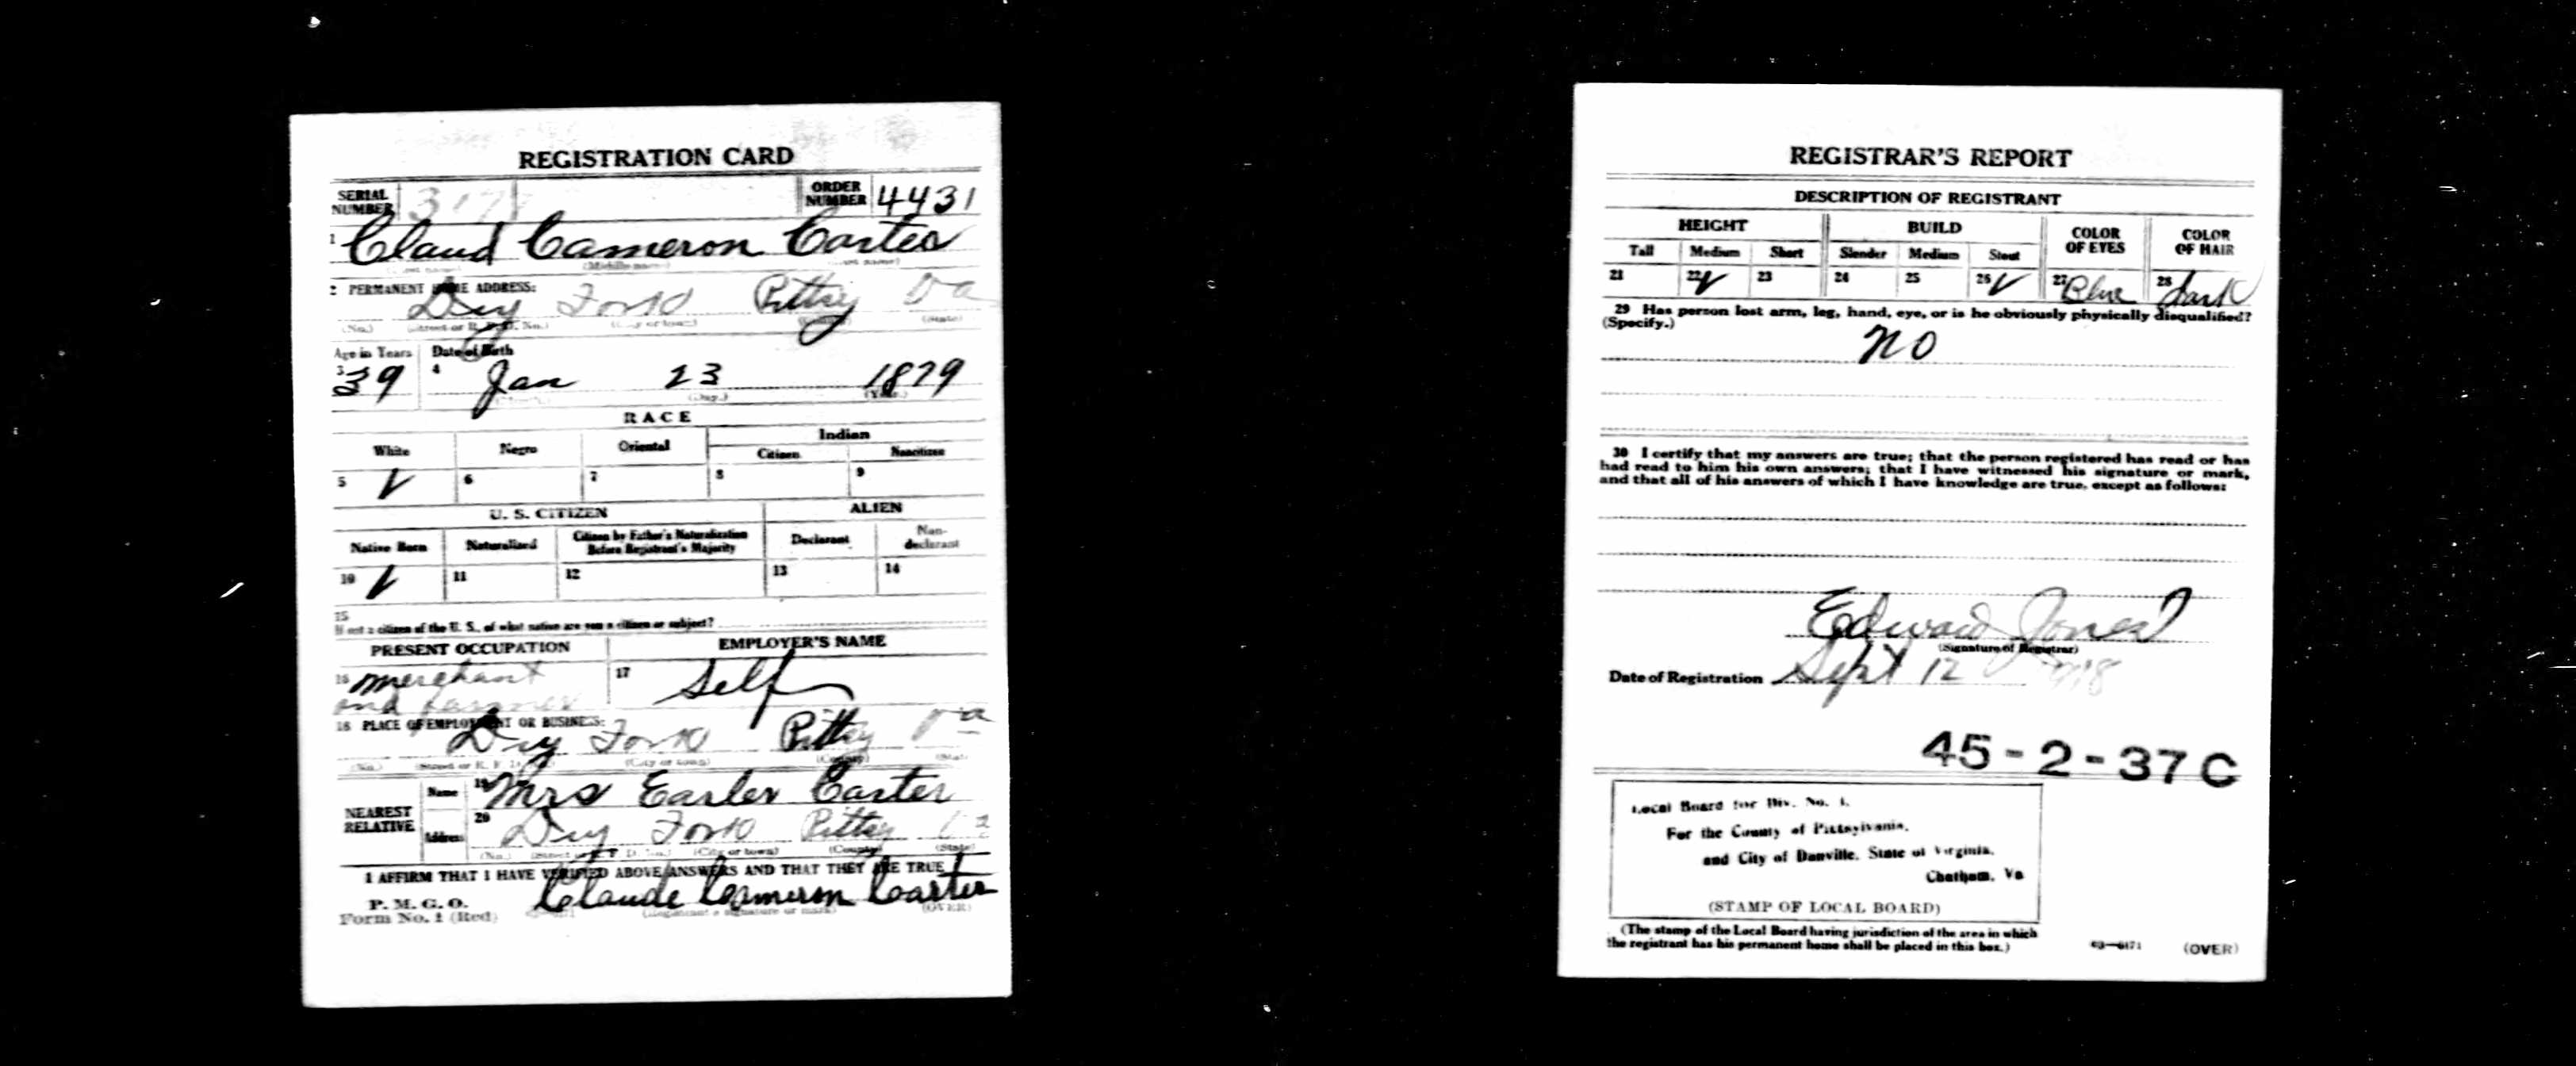 REGISTRATION CARD
SERIAL NUMBER ORDER NUMBER 4431
1 Claud Cameron Carter
(Middle name)
2 PERMANENT HOME ADDRESS:
Dry Fork Pittsy Va
(No.) (Street or R. F. D. No.) (City or town) (County) (State)
Age in Years Date of Birth
3 39 4 Jan 23 1879
(Day.) (Year.)
RACE
White Negro Oriental Indian
Citizen Noncitizen
5 ✓ 6 7 8 9
U. S. CITIZEN ALIEN
Native Born Naturalized Citizen by Father's Naturalization Before Registrant's Majority Declarant Non-declarant
10 ✓ 11 12 13 14
15
If not a citizen of the U. S., of what nation are you a citizen or subject?
PRESENT OCCUPATION EMPLOYER'S NAME
16 merchant and farmer 17 Self
18 PLACE OF EMPLOYMENT OR BUSINESS:
Dry Fork Pittsy Va
(No.) (Street or R. F. D. No.) (City or town) (County) (State)
NEAREST RELATIVE Name 19 Mrs Carter
Address 20 Dry Fork Pittsy Va
(No.) (Street or R. F. D. No.) (City or town) (County) (State)
I AFFIRM THAT I HAVE VERIFIED ABOVE ANSWERS AND THAT THEY ARE TRUE
P. M. G. O.
Form No. 1 (Red) Claude Cameron Carter
(Registrant's signature or mark) (OVER)
REGISTRAR'S REPORT
DESCRIPTION OF REGISTRANT
HEIGHT BUILD COLOR OF EYES COLOR OF HAIR
Tall Medium Short Slender Medium Stout
21 22 ✓ 23 24 25 26 ✓ 27 Blue 28 dark
29 Has person lost arm, leg, hand, eye, or is he obviously physically disqualified?
(Specify.)
no
30 I certify that my answers are true; that the person registered has read or has
had read to him his own answers; that I have witnessed his signature or mark,
and that all of his answers of which I have knowledge are true, except as follows:
Edward Jones
(Signature of Registrar)
Date of Registration Sept 12 1918
45-2-37 C
Local Board for Div. No. 1,
For the County of Pittsylvania,
and City of Danville, State of Virginia,
Chatham, Va
(STAMP OF LOCAL BOARD)
(The stamp of the Local Board having jurisdiction of the area in which
the registrant has his permanent home shall be placed in this box.)
03—6171 (OVER)